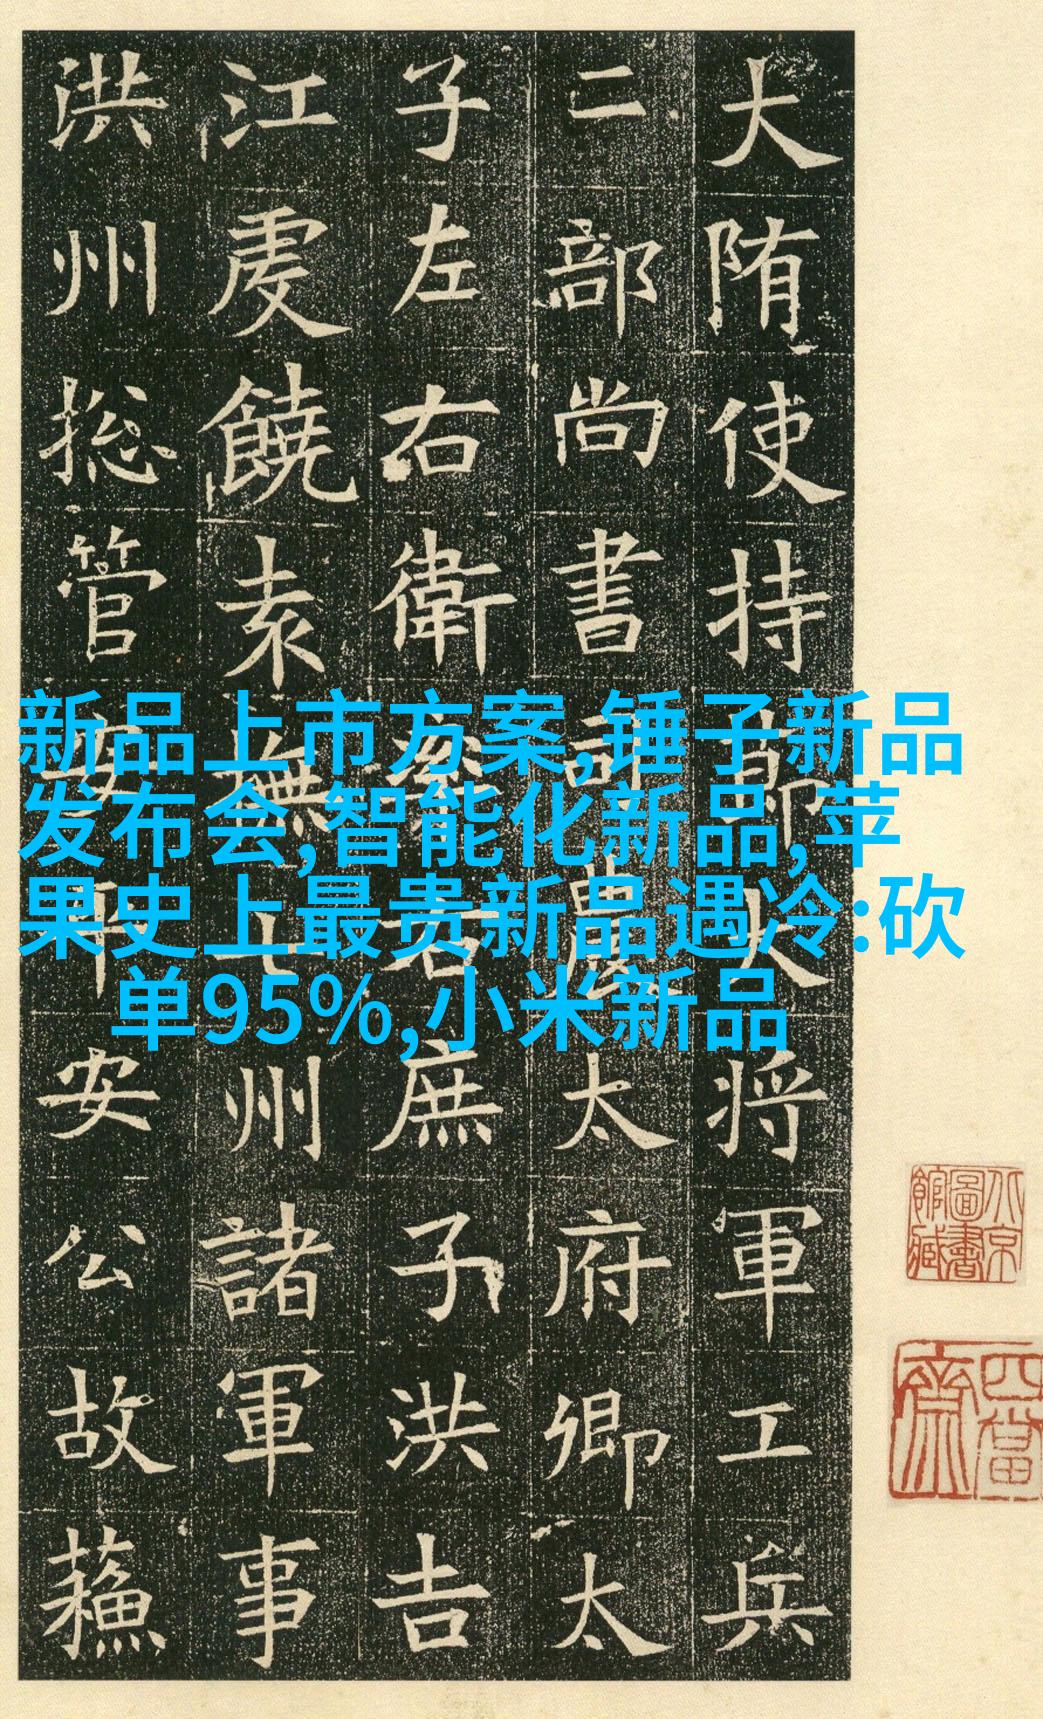 新品上市方案,锤子新品
发布会,智能化新品,苹
果史上最贵新品遇冷:砍
单95%,小米新品
大陏使持節大将軍工兵
二部尚書司農太府卿太
子左右衛率右庶子洪吉
江虔饒袁撫七州諸軍事
洪州捴管安平安公故蘓
北京圖書館藏
四當齋